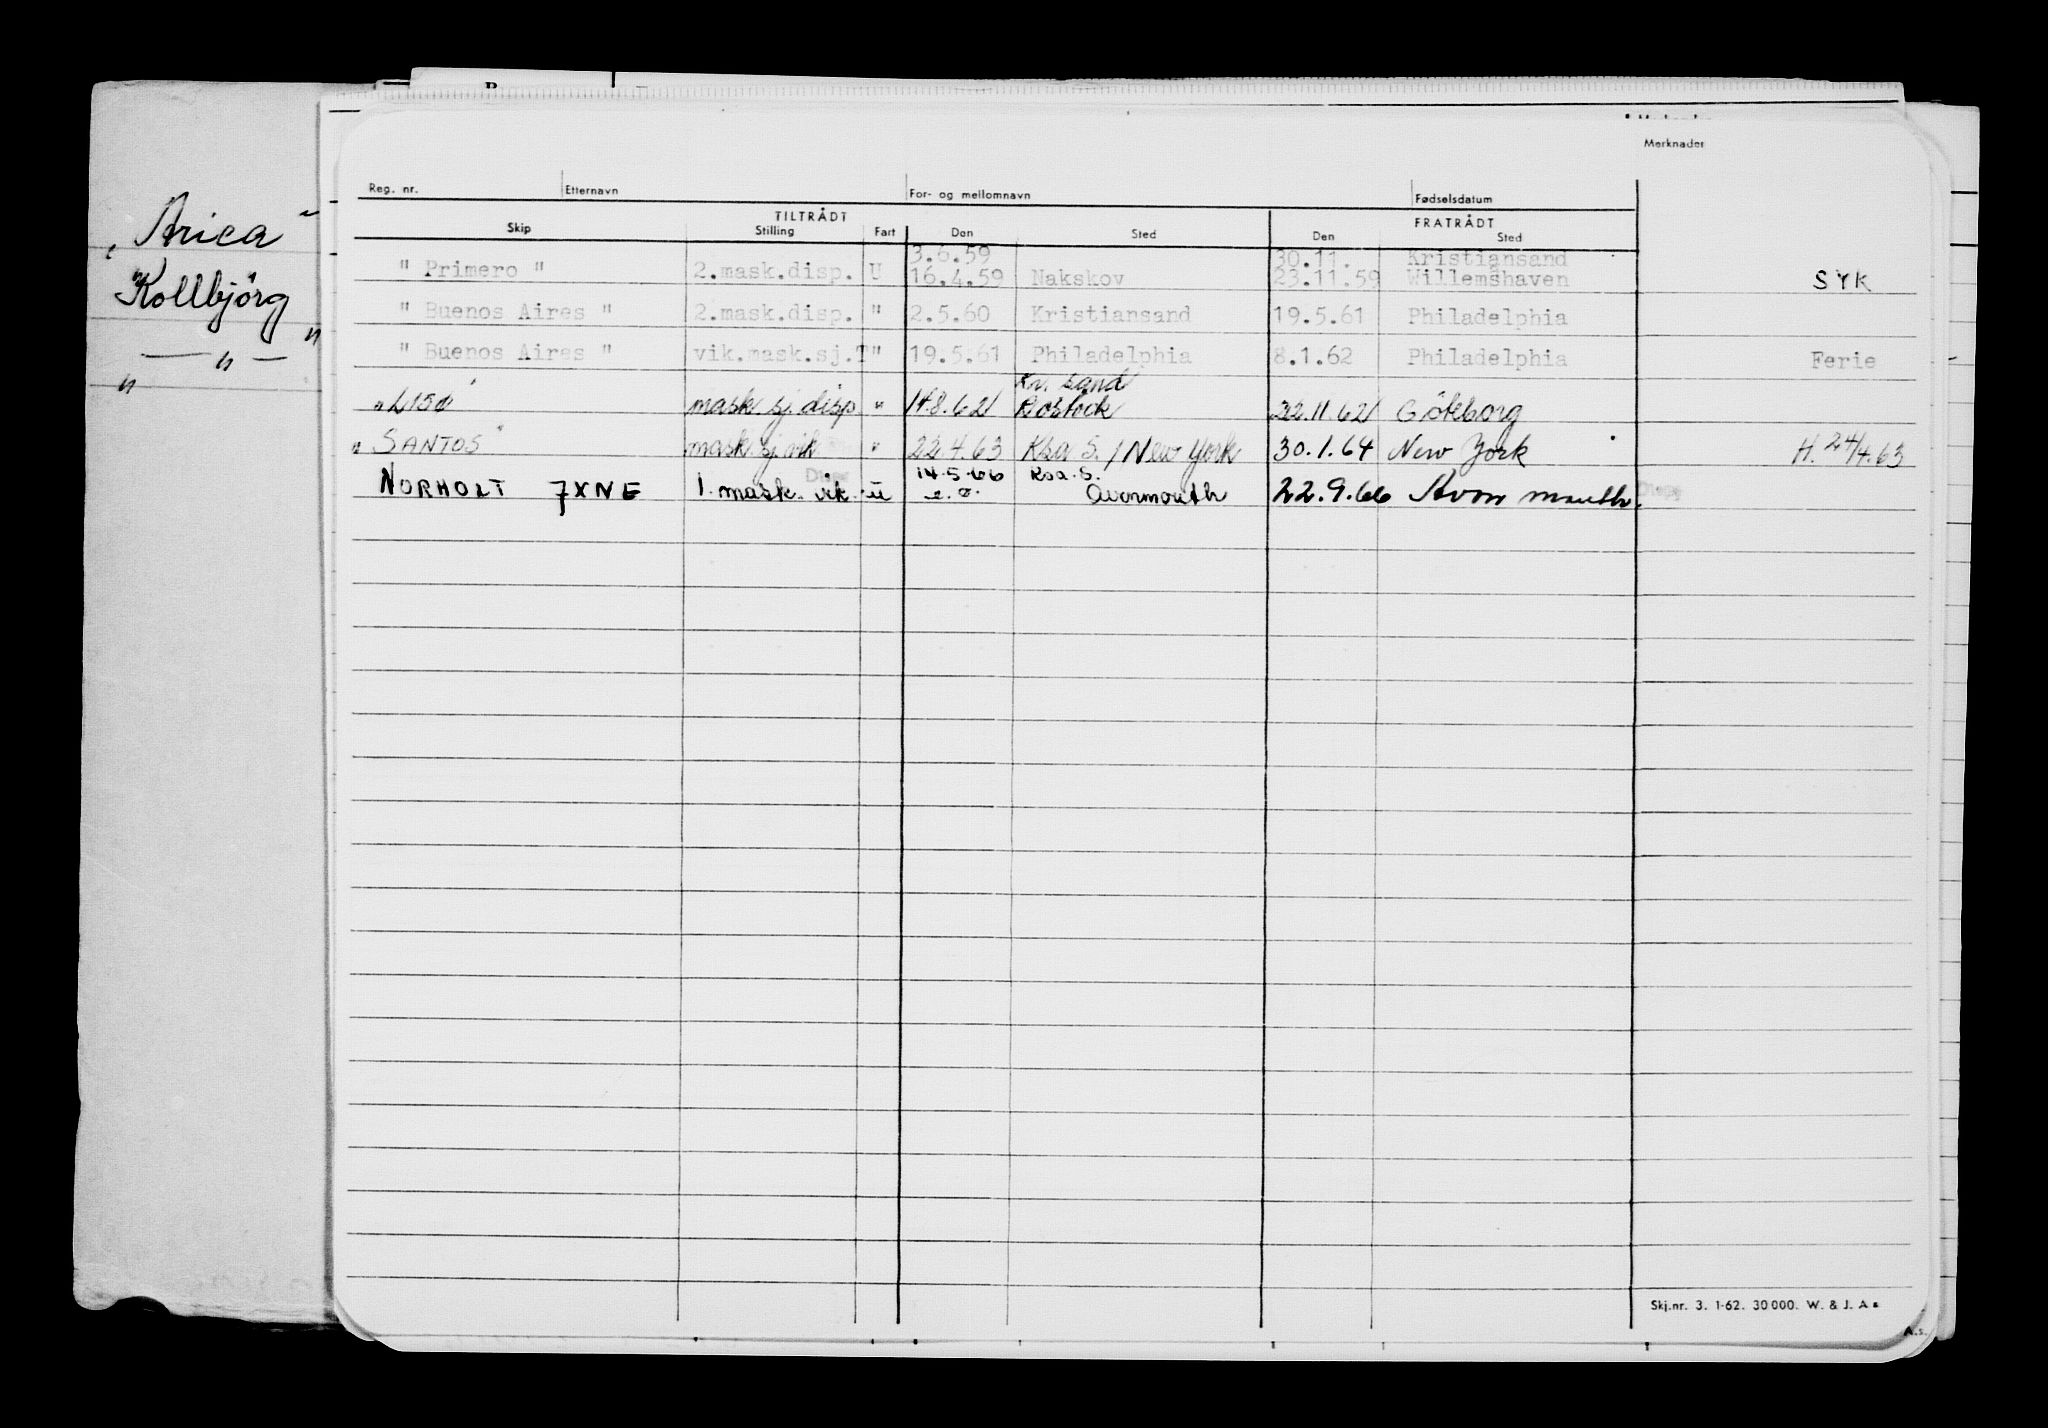 "Arica"
"Kollbjörg"
" — " —
Merknader
Reg. nr. Etternavn For- og mellomnavn Fødselsdatum
TILTRÅDT FRATRÅDT
Skip Stilling Fart Den Sted Den Sted
3.6.59 30.11. Kristiansand
" Primero " 2.mask.disp. U 16.4.59 Nakskov 23.11.59 Willemshaven SYK
" Buenos Aires " 2.mask.disp. " 2.5.60 Kristiansand 19.5.61 Philadelphia
" Buenos Aires " vik.mask.sj.T " 19.5.61 Philadelphia 8.1.62 Philadelphia Ferie
Kr. sand
mask. sj. disp " 14.8.62 Rostock 22.11.62 Göteborg
"SANTOS" mask. sj. vik " 22.4.63 Ksa S. / New York 30.1.64 New York H. 24/4.63
14.5.66 Ksa. S.
NORHOLT JXNE 1. mask. vik. u Avonmouth 22.9.66 Avonmouth.
Skj.nr. 3. 1-62. 30 000. W. & J. A s
A.s.